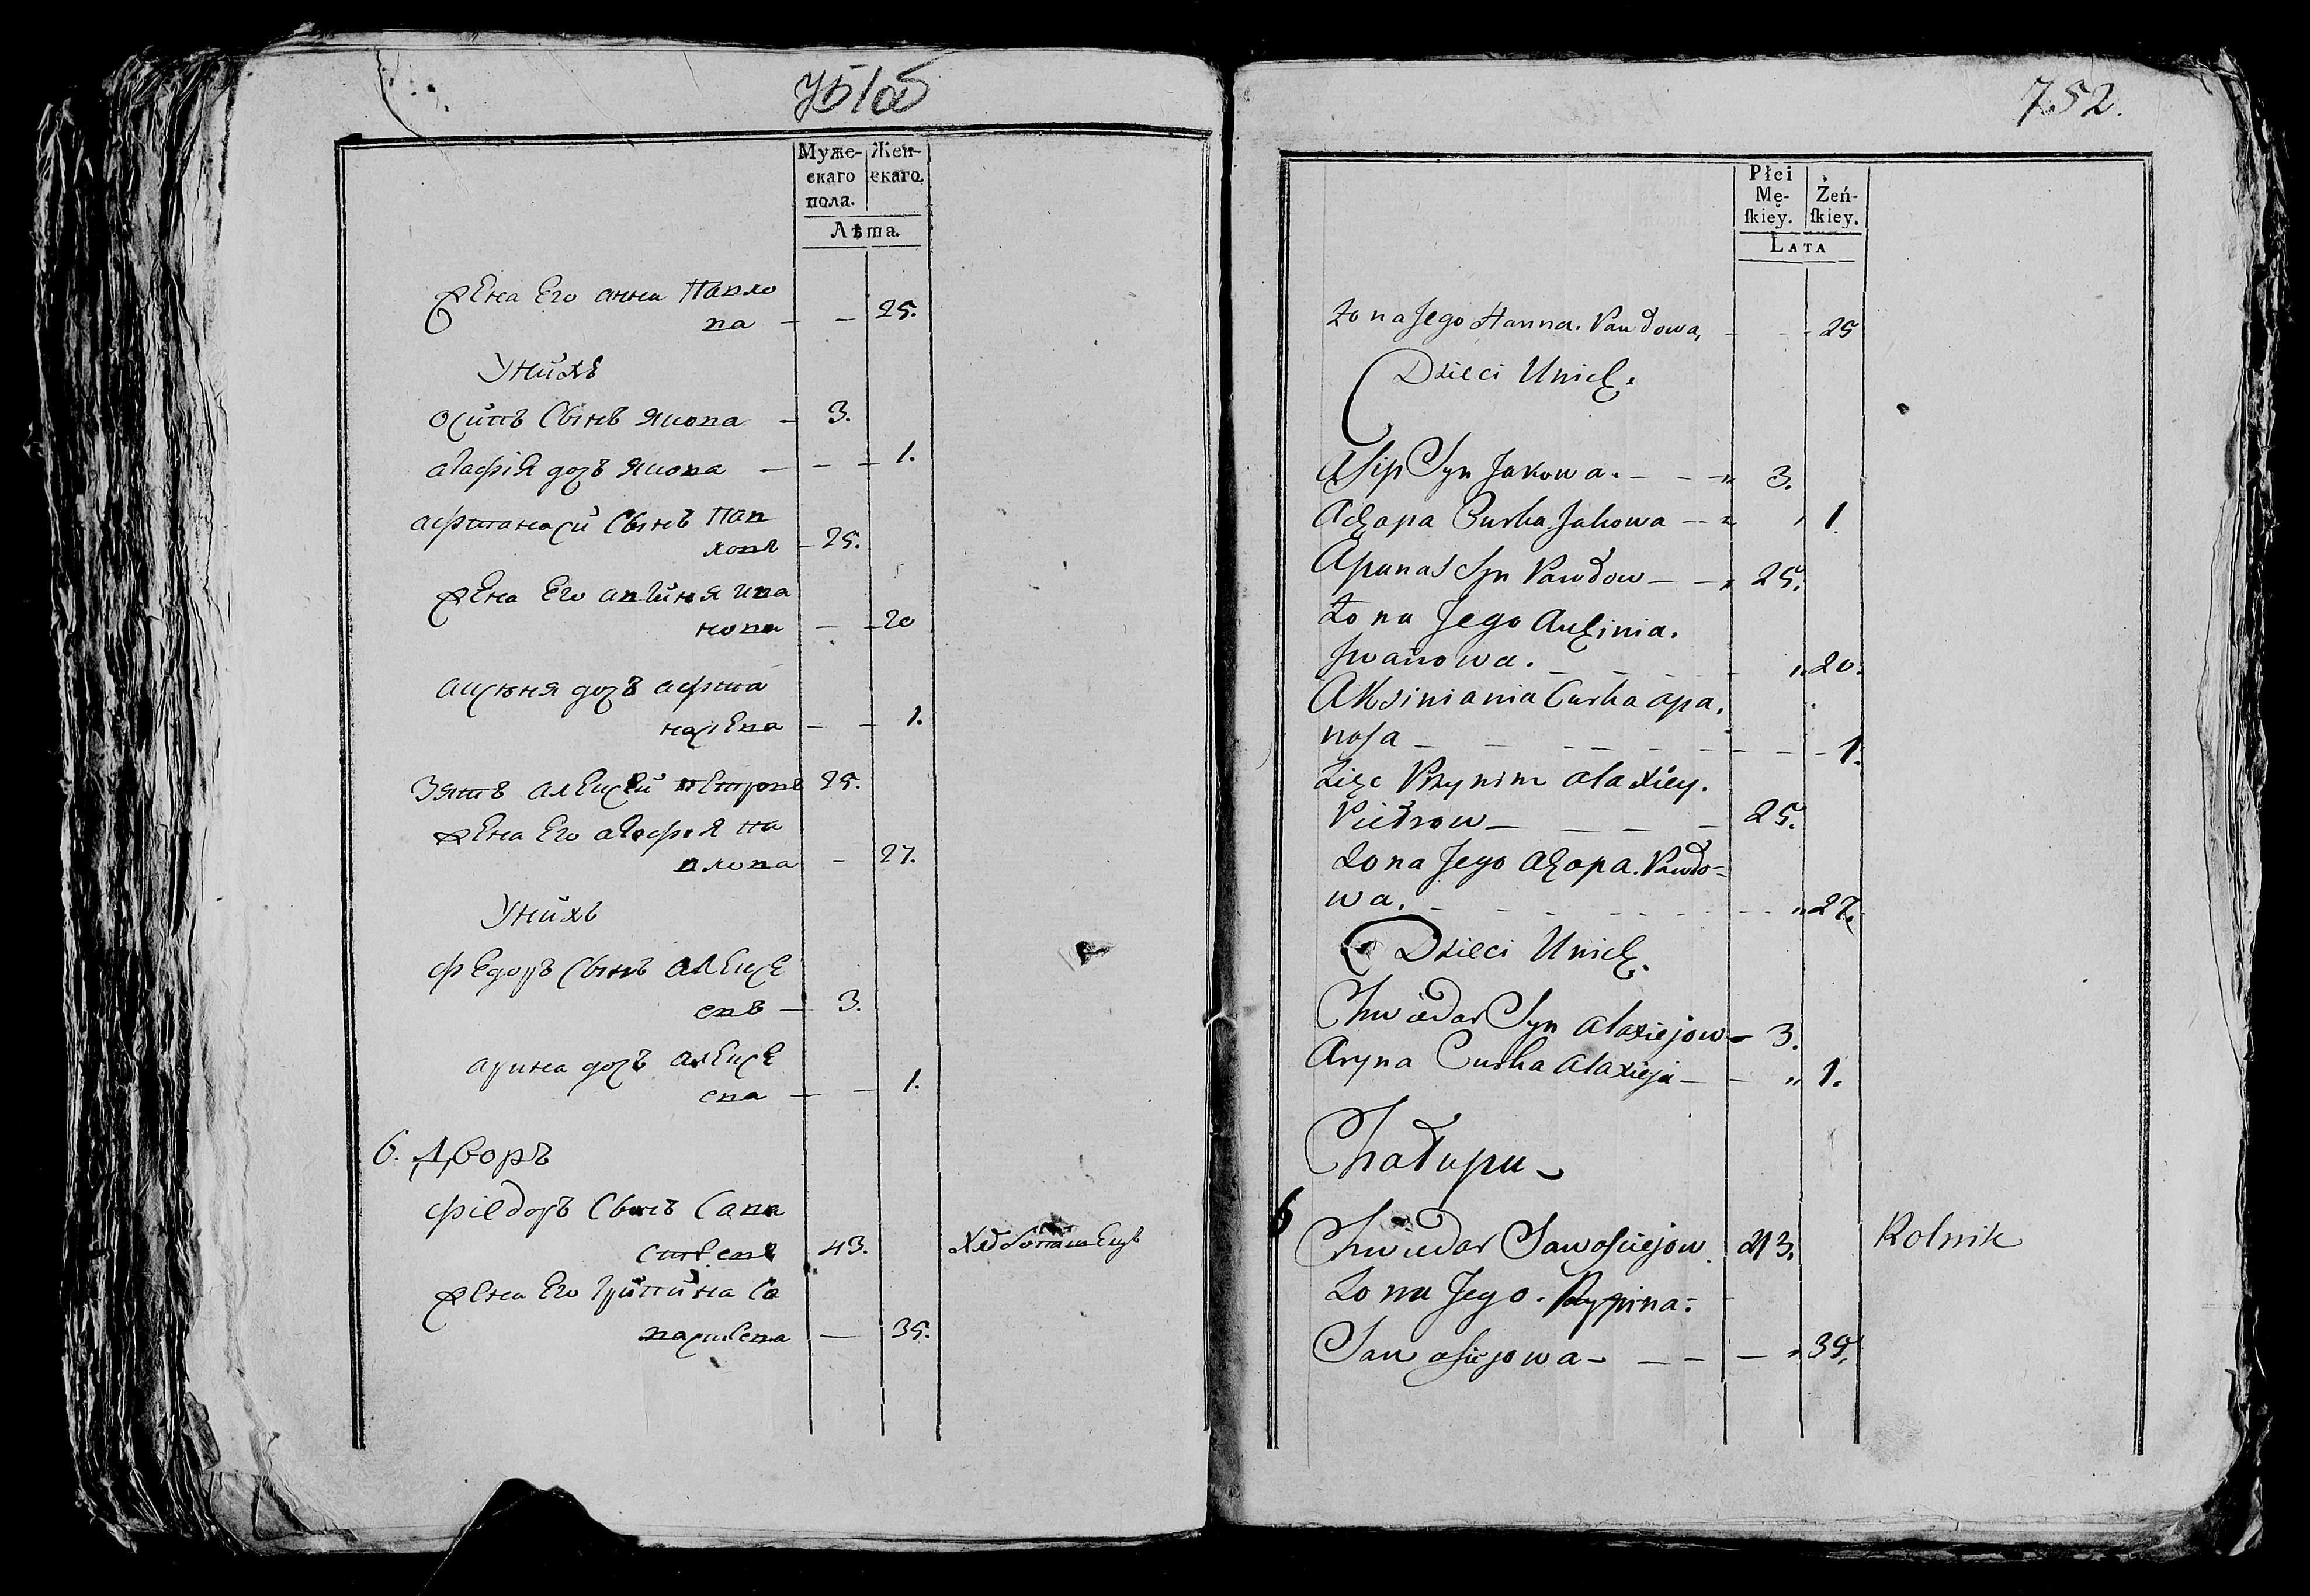 751об
Муже-
скаго
пола.
Жен-
скаго.
Лѣта.
жена Его анна Павло
ва — — 25.
Унихъ
осипъ Сынъ якова — 3.
агафiя дочъ якова — — — 1.
афтанасй Сынъ Пав
ловъ — 25.
жена Его авгиня ива
нова — — 20
аксюня дочъ афта
насЕва — — 1.
Зять алЕксЕй пЕтровъ 25.
жена Его агафия па
влова — 27.
Унихъ
фЕдоръ Сынъ алЕксЕ
евъ — 3.
арина дочъ алЕксЕ
ева — — 1.
6. Дворъ
фiедоръ Сынъ Сава
стеевъ 43. Хлѣбопашецъ
жена Его Грипина Са
вастеева — 35.
752.
Płci
Mę-
ſkiey.
Żeń-
ſkiey.
LATA
Żona Jego Hanna. Pawłowa, - - - 25
Dzieci Unich.
Osip Syn Jakowa. - - - „ 3.
Achapa Curka Jakowa - - „ 1
Apanas Syn Pawłow - - „ 25.
Żona Jego Auhinia.
Jwanowa. - - - „ 20.
Aksiniania Curka apa,
nasa - - - - - - 1.
Zięc Przynim alaxiey.
Piętrow - - - - 25.
Żona Jego Ahapa. Pawło-
wa. - - - - „ 27.
Dzieci Unich.
Chwiedor Syn alaxiejow - 3.
Aryna Curka alaxieja - - „ 1.
Chałupa -
6
Chwiedor Sawasciejow. 43. Rolnik
Żona Jego. Rypina.
Sawasiejowa - - - - „ 35.